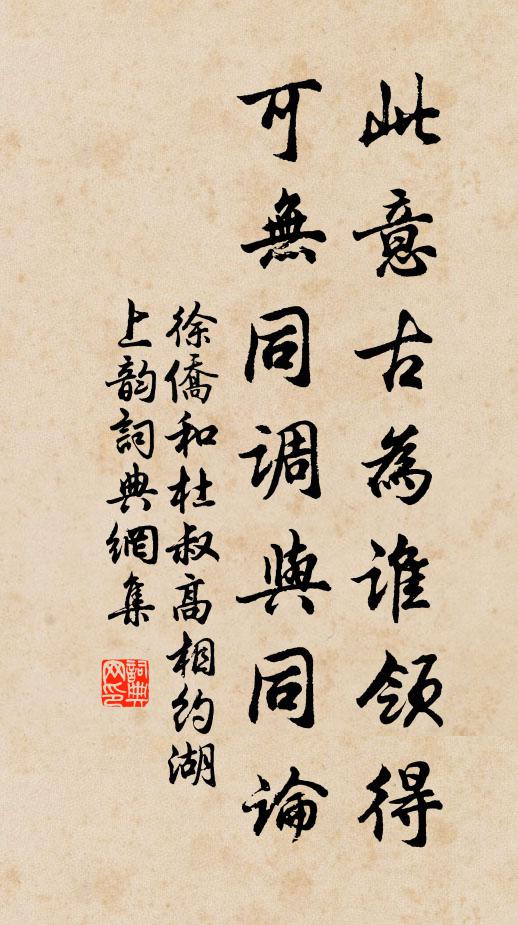 此意古為誰領得
可無同調與同論
徐僑和杜叔高相約湖
上韵詞典網集
詞典
网印